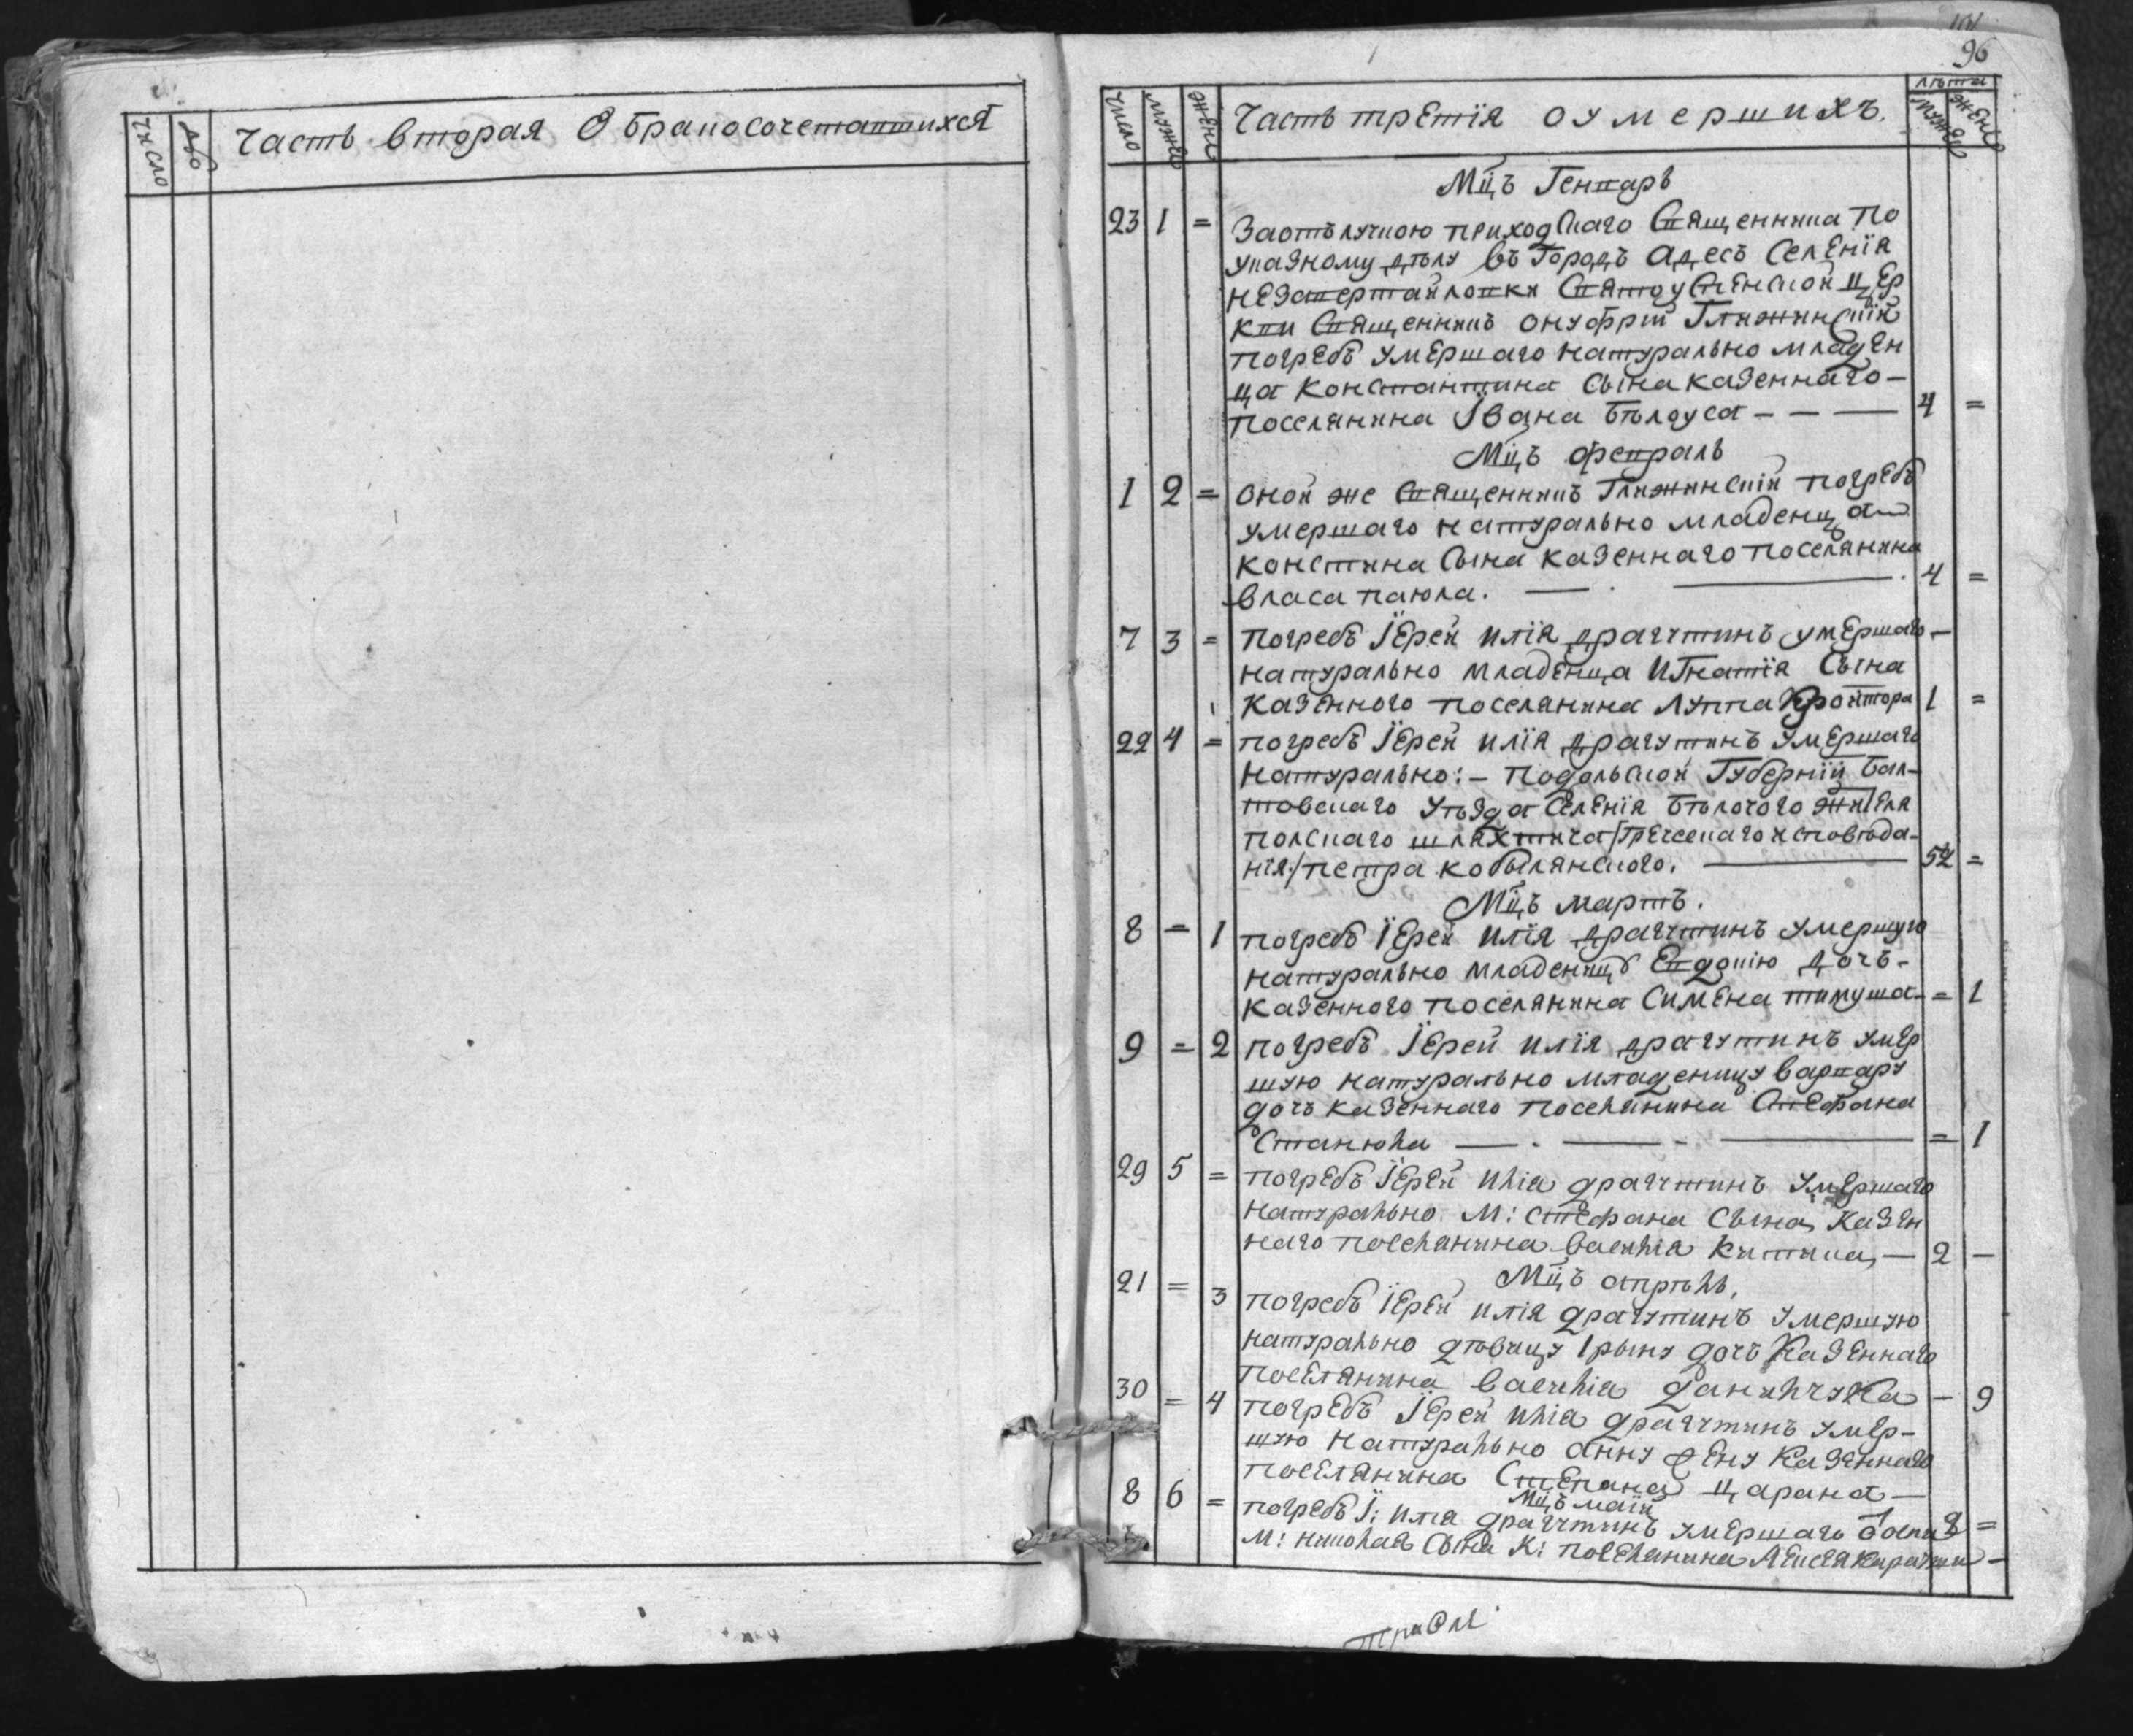 число
дво
Часть вторая О Бракосочетавшихся
101
96
число
мужес
женс
Часть третїя о умершихъ.
лѣта
мужес
женс
Мцъ Генварь
23 1 = Заотълучкою приходскаго Священника по
указному дѣлу въ Городъ Адесъ Селенїя
незавертайловки Святоуспенской цер
кви Священникъ Онуфрий Глижинскїй
погребъ умершаго натурально младен
ца Константина сына казеннаго -
поселянина Їվана Бѣлоуса - - - 4 =
Мцъ февраль
1 2 = оной же Священникъ Глижинскій погребъ
умершаго натурально младенца
констина сына казеннаго поселянина
власа паюла. — . — . 4 =
7 3 = погребъ Їерей Илїя драгутинъ умершаго -
натурально младенца Игнатїя сына
казенного поселянина Луппа Кройтора 1 =
22 4 = погребъ Їерей Илїя драгутинъ умершаго
натурально: - подольской Губернїи Бал-
товскаго уѣзда селенїя Бѣлочого жителя
полскаго шляхтича /:греческаго исповѣда-
нїя:/ петра кобылянского. — 52 =
Мцъ мартъ.
8 = 1 погребъ Їерей Илїя драгутинъ умершую
натурально младеницу Евдокию дочь -
казенного поселянина Симена тимуша - = 1
9 = 2 погребъ Їерей Илїя драгутинъ умер
шую натурально младеницу варвару
дочь казеннаго поселянина Стефана
Станюка — . — - — = 1
29 5 = погребъ Їерей Илїа драгутинъ умершаго
натурально М: стефана сына казен
наго поселянина василїя китика, — 2 -
Мцъ апрѣль,
21 = 3 погребъ Їерей Илїя драгутинъ умершую
натурально дѣвицу Ірыну дочь казеннаго
поселянина василїя данилчука - 9
30 = 4 погребъ Їерей Илїа драгутинъ умер-
шую натурально анну жену казеннаго
поселянина Степана царана -
Мцъ маїй
8 6 = погребъ Ї: Илїа драгутинъ умершаго 8 =
М: николая сына К: поселянина -